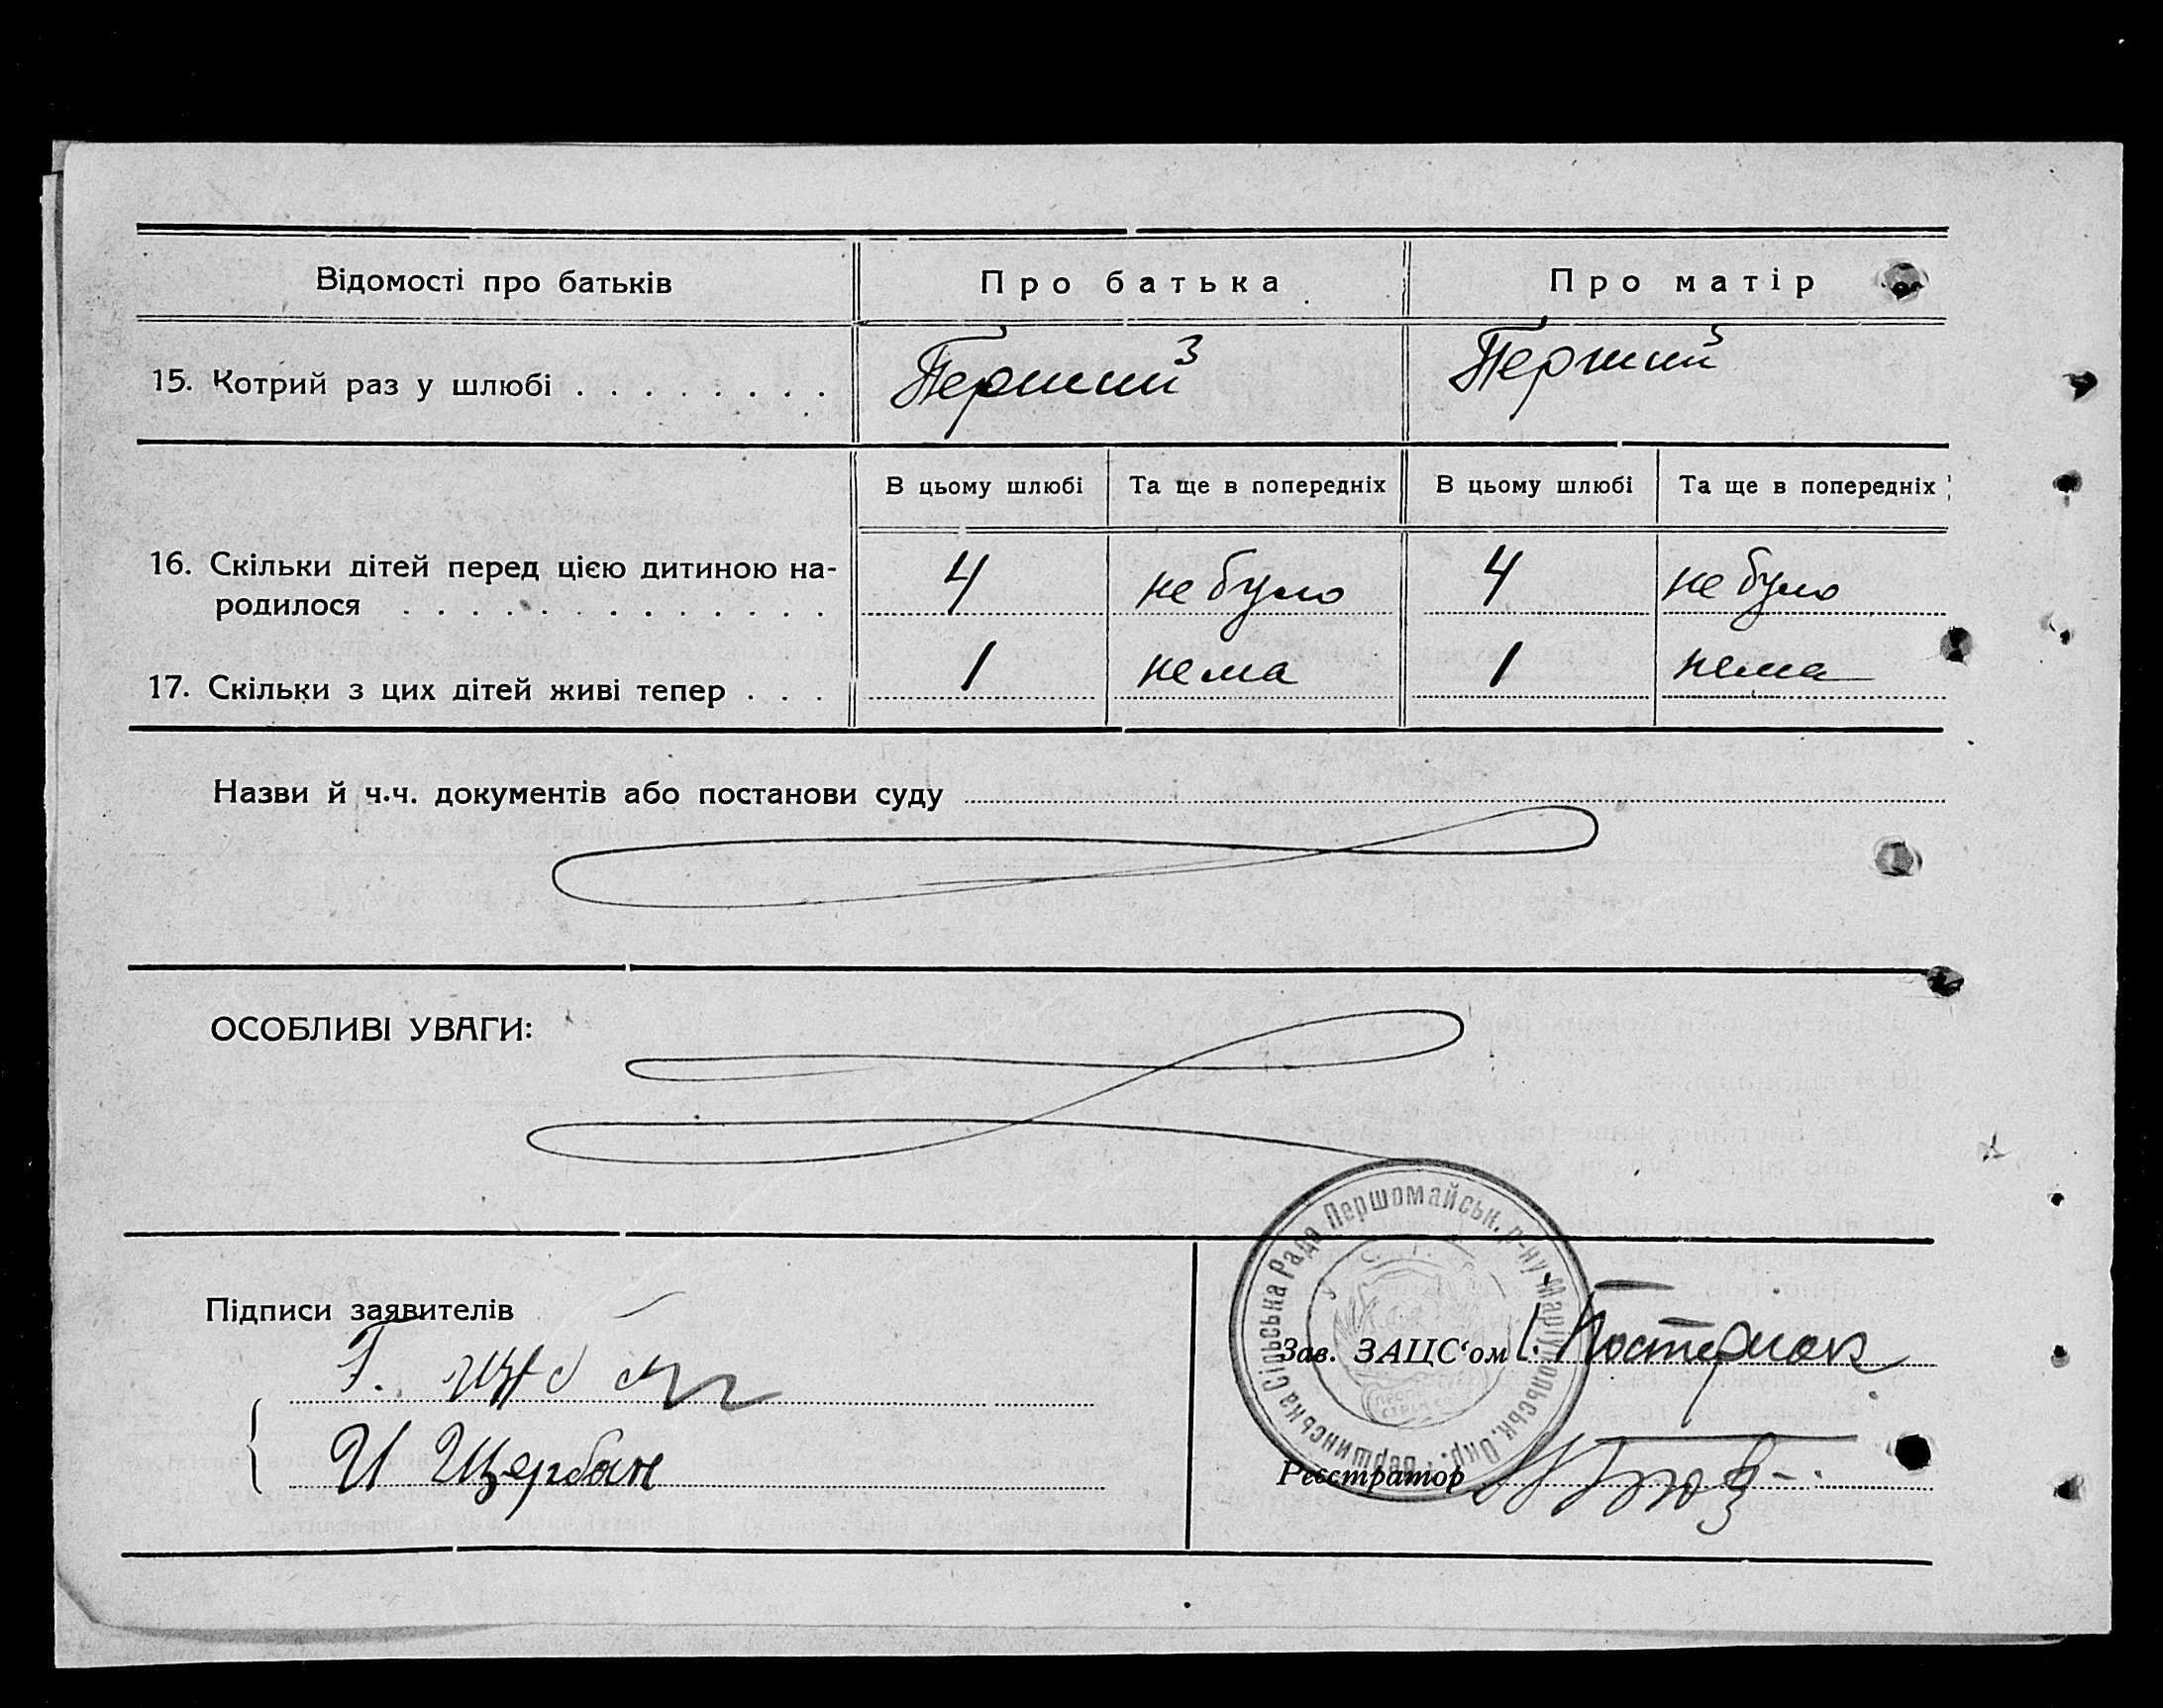 Відомості про батьків
Про батька
Про матір
15. Котрий раз у шлюбі . . . . . . . .
Перший
Перший
В цьому шлюбі
Та ще в попередніх
В цьому шлюбі
Та ще в попередніх
16. Скільки дітей перед цією дитиною на-
родилося . . . . . . . . . . . . . .
4
не було
4
не було
17. Скільки з цих дітей живі тепер . . .
1
нема
1
нема
Назви й ч.ч. документів або постанови суду
ОСОБЛИВІ УВАГИ:
Сільська Рада Першомайськ. р-ну Маріупольськ. Окр.
Підписи заявителів
Г.
И Щербан
Зав. ЗАЦС'ом
Реєстратор